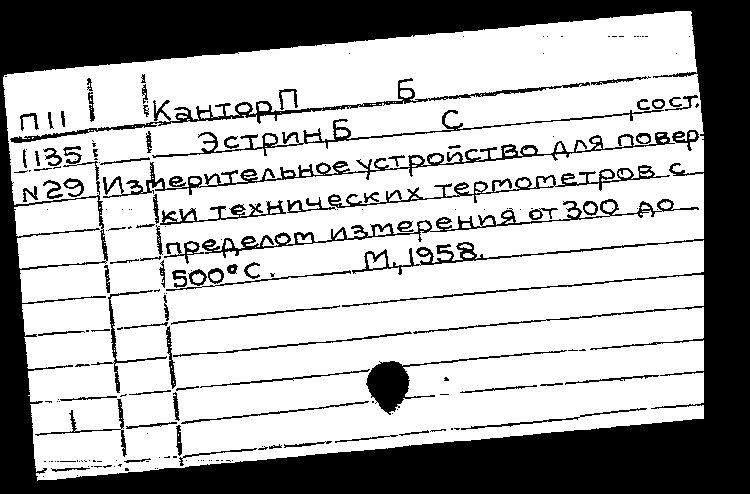 П 11 Кантор, П Б
1135 Эстрин, Б С , сост.
N29 Измерительное устройство для повер-
ки технических термометров с
пределом измерения от 300 до
500°С. М., 1958.
1